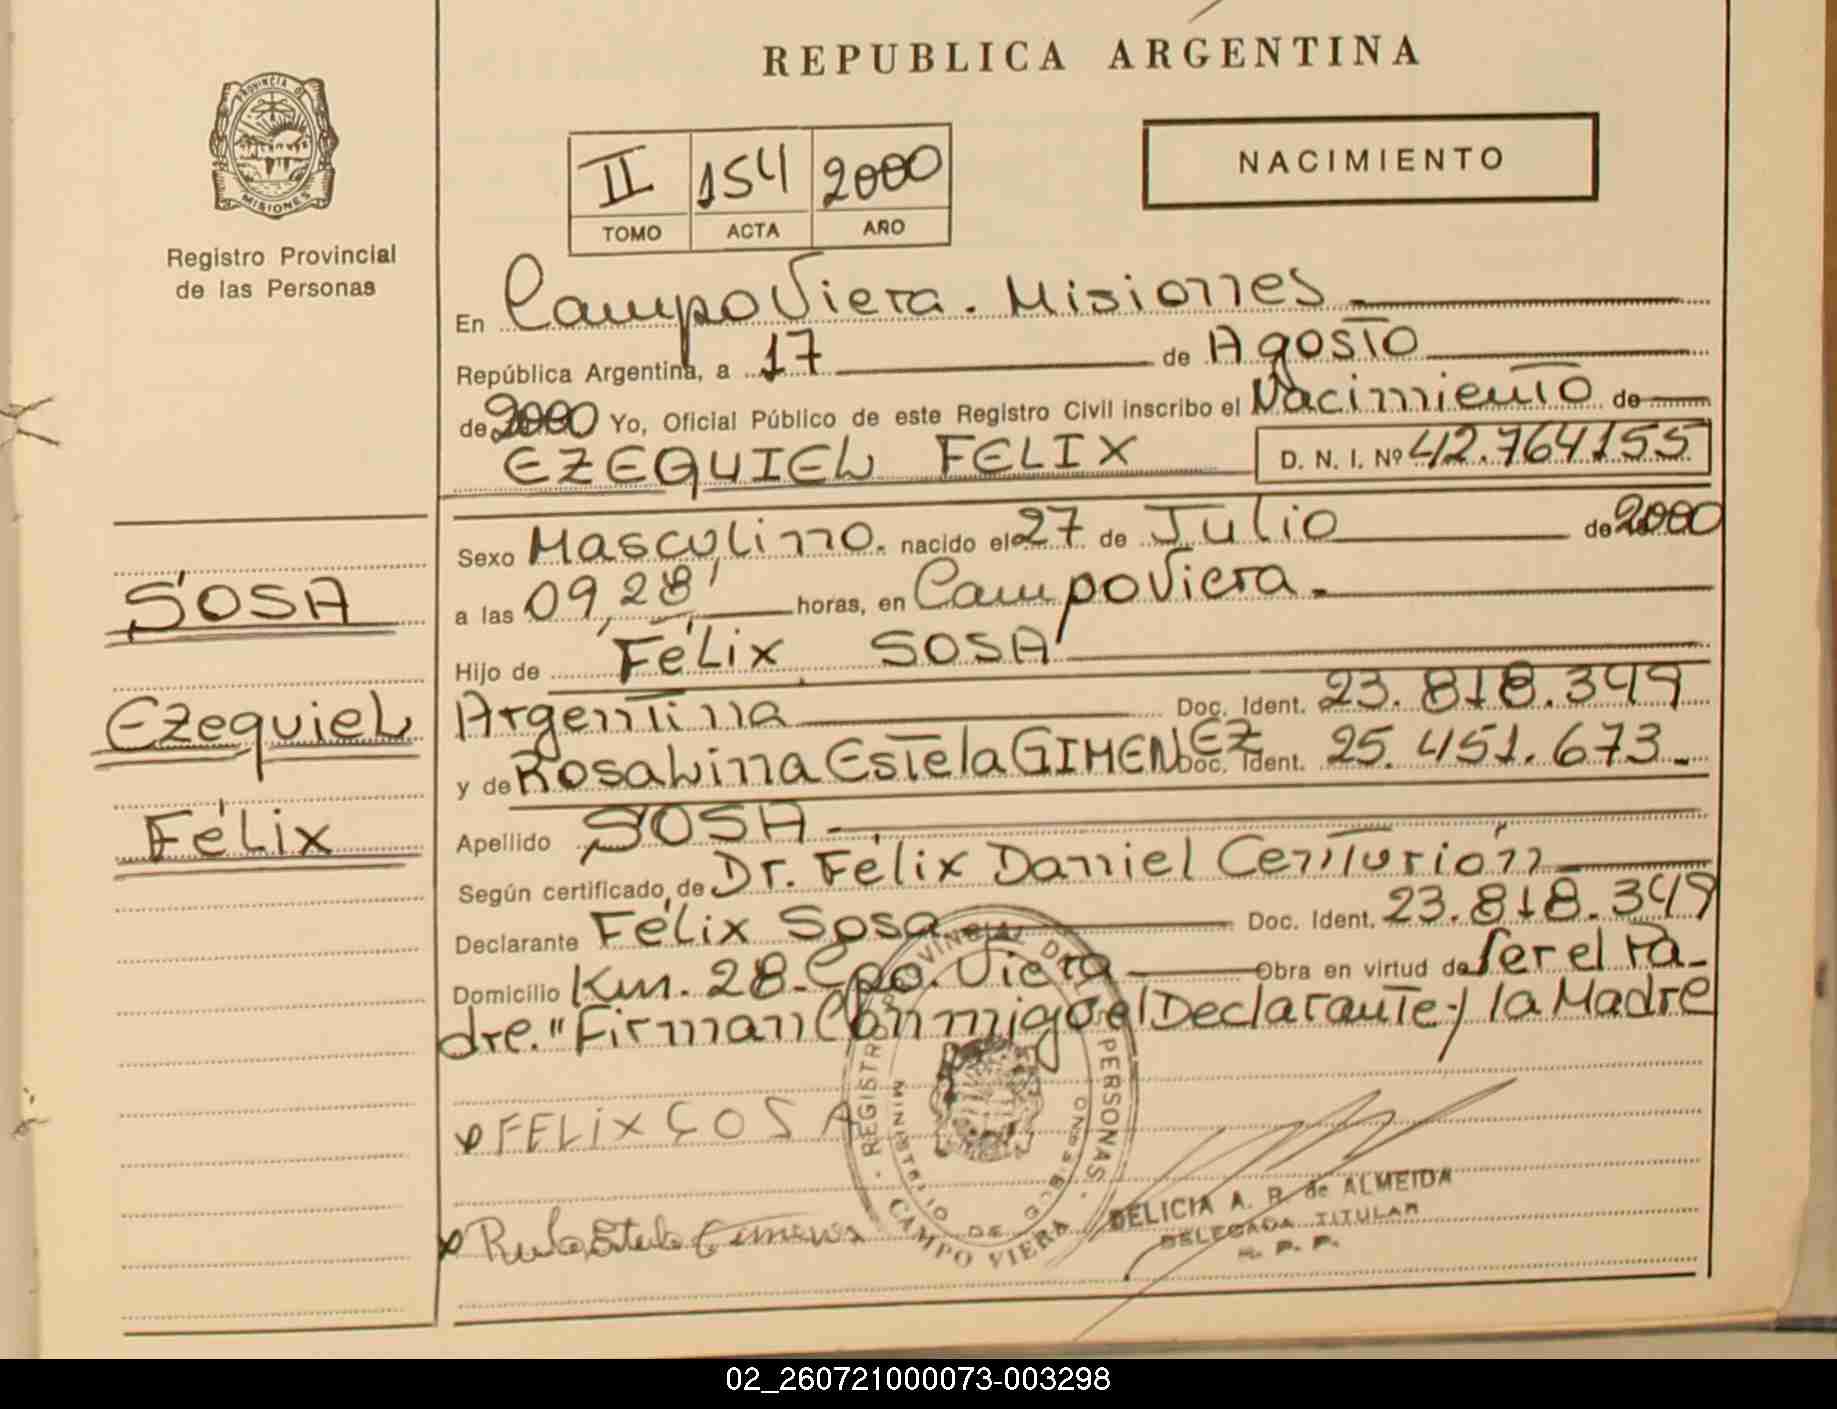 REPUBLICA ARGENTINA
PROVINCIA DE
MISIONES
Registro Provincial
de las Personas
II 154 2000
TOMO ACTA AÑO
NACIMIENTO
En Campo Viera. Misiones
República Argentina, a 17 de Agosto
de 2000 Yo, Oficial Público de este Registro Civil inscribo el Nacimiento de
EZEQUIEL FELIX D. N. I. Nº 42.764155
Sexo Masculino. nacido el 27 de Julio de 2000
a las 09,28' horas, en Campo Viera.
Hijo de Félix SOSA
Argentina Doc. Ident. 23.818.349
y de Rosalina Estela GIMENEZ Doc. Ident. 25.451.673
Apellido SOSA
Según certificado de Dr. Félix Daniel Centurión
Declarante Félix Sosa Doc. Ident. 23.818.349
Domicilio Km. 28. Cpo. Viera Obra en virtud de ser el Pa-
dre." Firman Conmigo el Declarante y la Madre
SOSA
Ezequiel
Félix
FELIX SOSA
REGISTRO PROVINCIAL DE PERSONAS
MINISTERIO DE GOBIERNO
CAMPO VIERA
DELICIA A. R. de ALMEIDA
DELEGADA TITULAR
R. P. P.
02_260721000073-003298